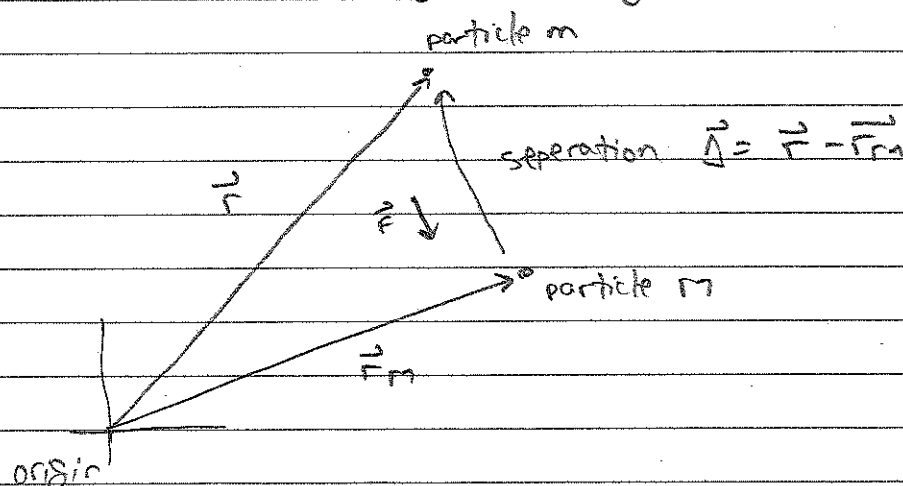 particle m
seperation $\vec{\Delta} = \vec{r} - \vec{r}_m$
$\vec{r}$
$\vec{F}$
particle M
$\vec{r}_M$
origin